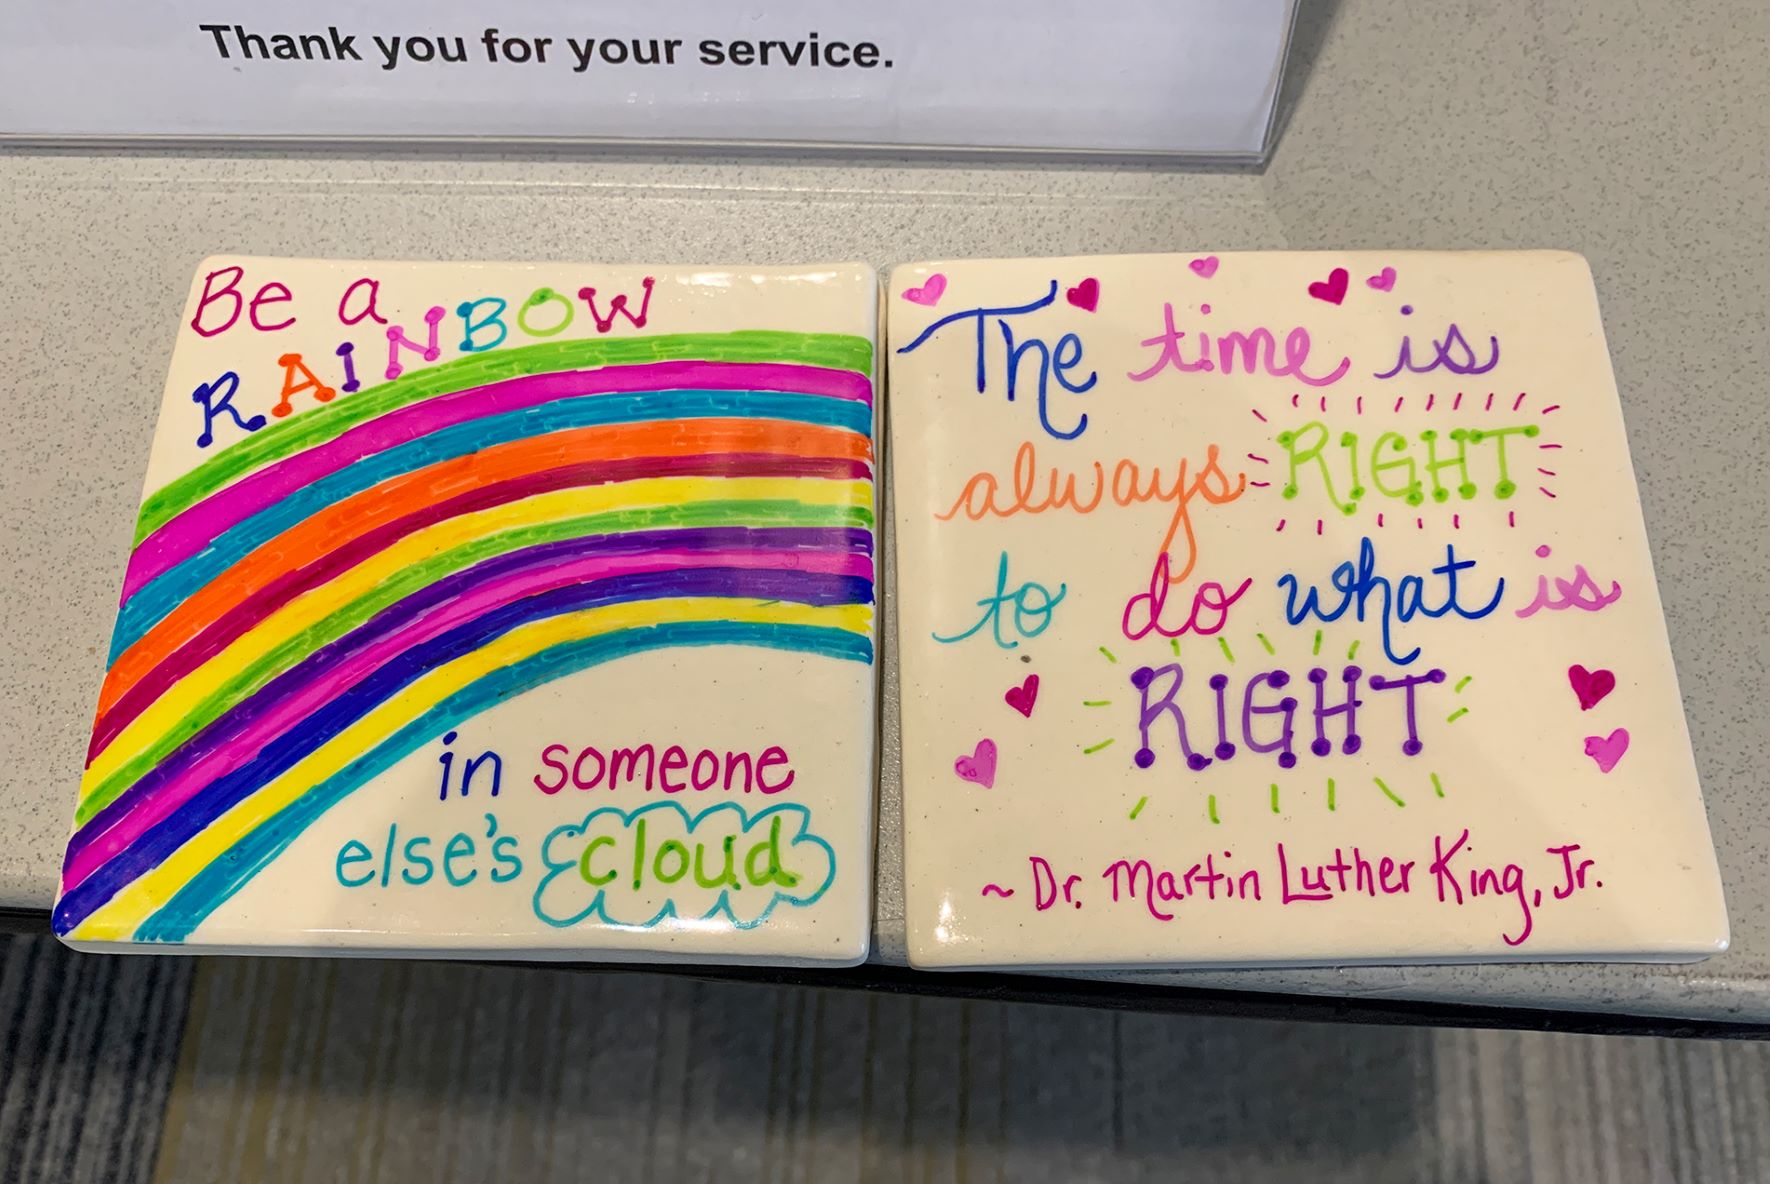 Thank you for your service.
Be a
RAINBOW
in someone
else's cloud
The time is
always RIGHT
to do what is
RIGHT
~ Dr. Martin Luther King, Jr.